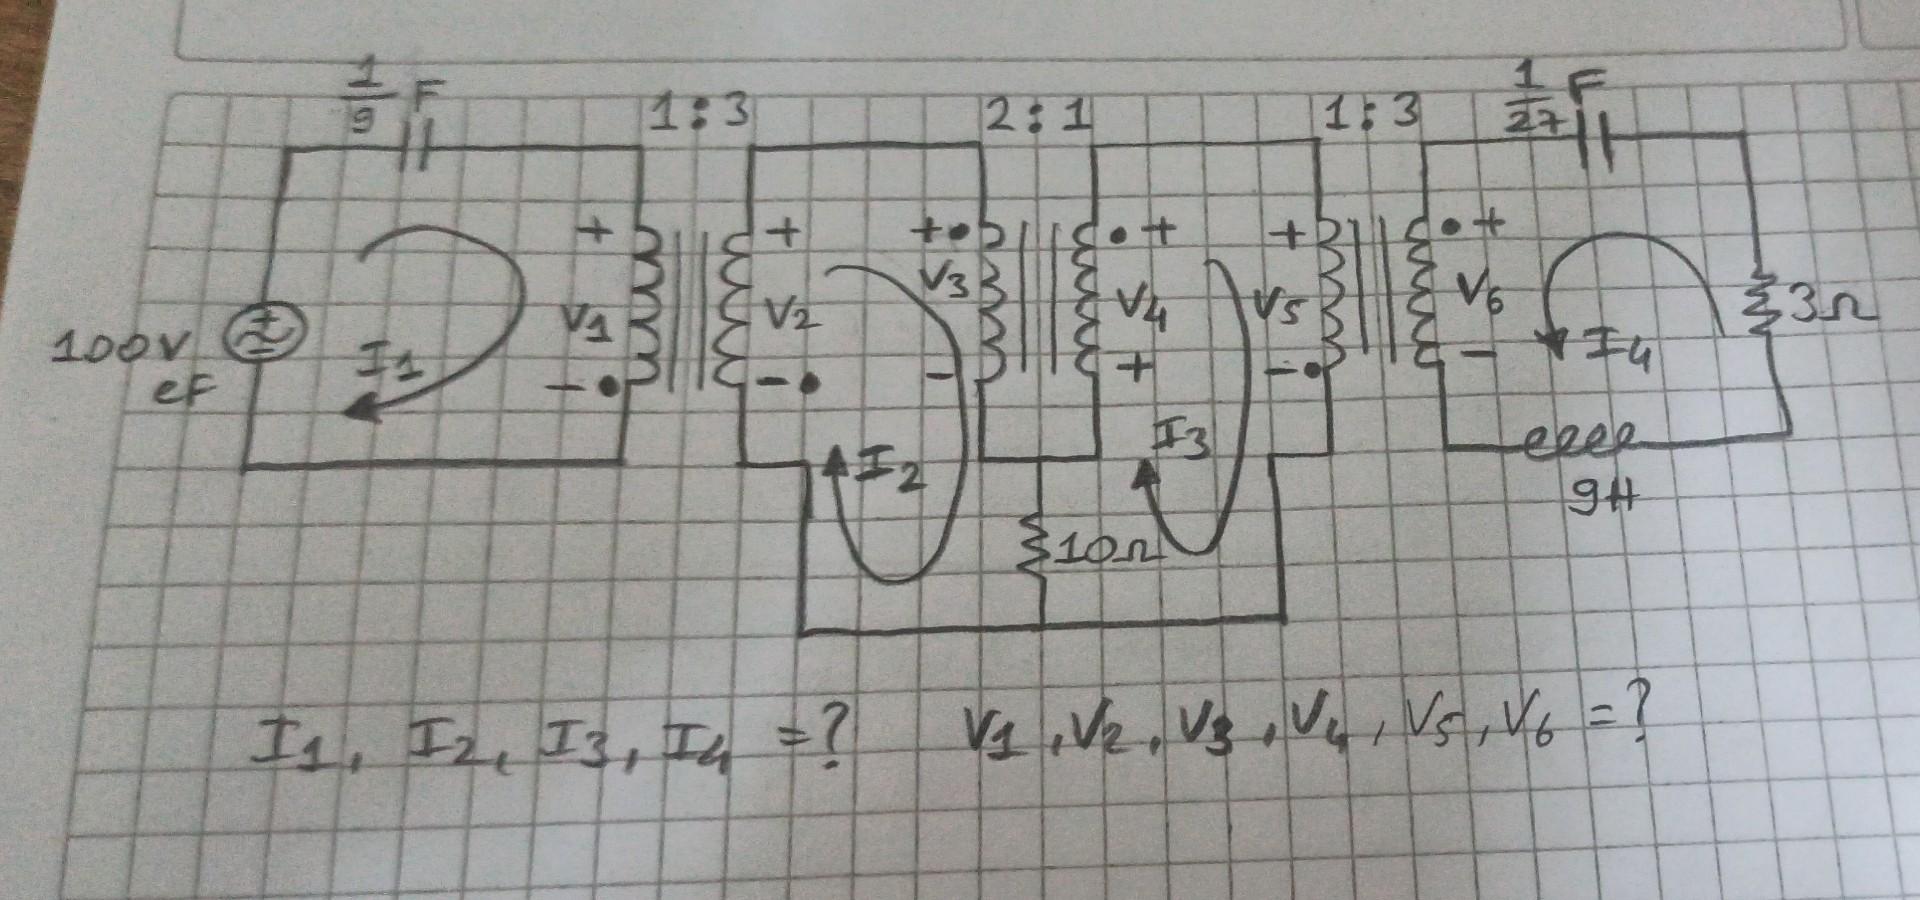 1/9 F 1:3 2:1 1:3 1/27 F
+ + +• •+ + •+
100V ef + - I1 V1 V2 V3 V4 V5 V6 I4 3Ω
-• -• - + -• -
I2 I3
10Ω 9H
I1, I2, I3, I4 =? V1, V2, V3, V4, V5, V6 =?